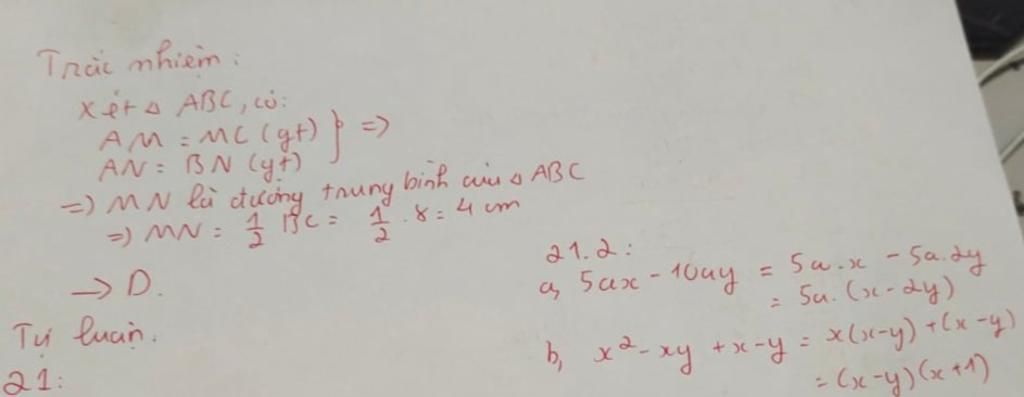 Trắc nhiệm:
Xét △ ABC, có:
AM = MC (gt)
AN = BN (gt) } =>
=> MN là đường trung bình của △ ABC
=> MN = 1/2 BC = 1/2 . 8 = 4 cm
→ D.
Tự luận.
21:
21.2:
a, 5ax - 10ay = 5a.x - 5a.2y
= 5a.(x-2y)
b, x² - xy + x - y = x(x-y) + (x-y)
= (x-y)(x+1)